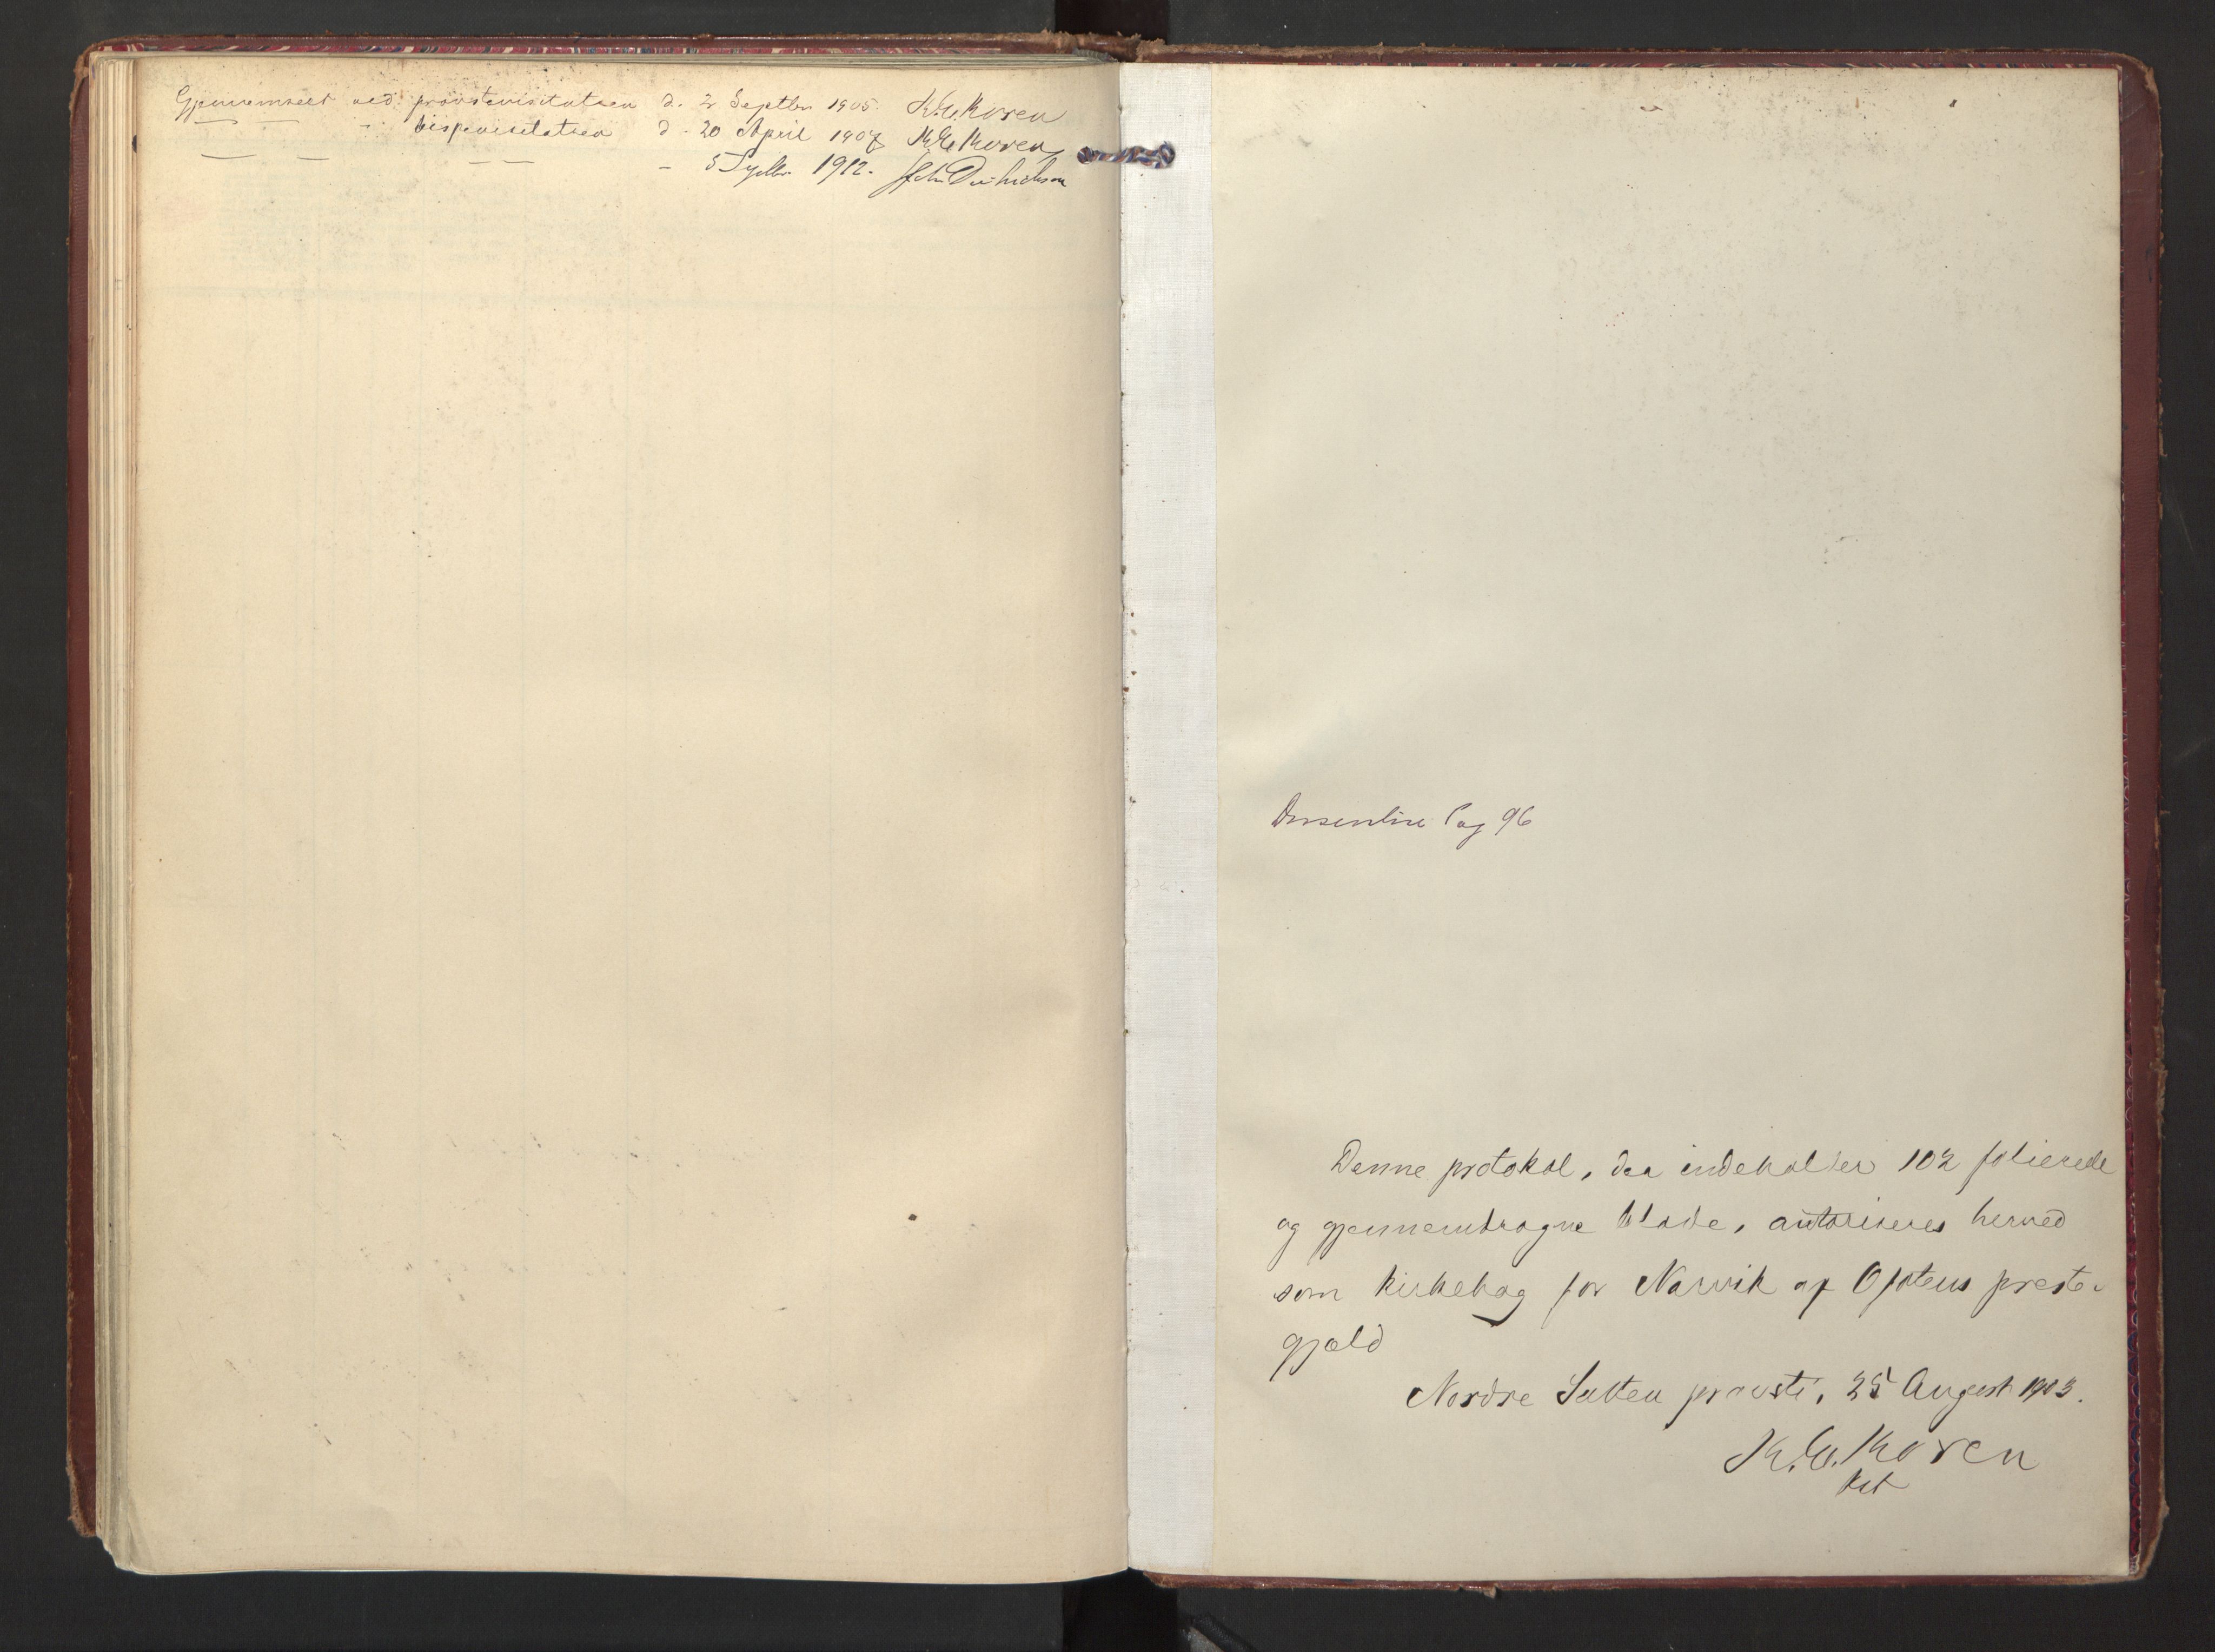 Gjennemseet ved provstevisitatsen d. 2 Septbr 1905. K.C. Koren
— — - bispevisitatsen d - 20 April 1907 K.C. Koren
— — — — - 5 Septbr 1912.
Dissentere Pag 96
Denne protokol, der indeholder 102 folierede
og gjennemdragne blade, autoriseres herved
som kirkebog for Narvik af Ofotens preste-
gjæld
Nordre Salten provsti, 25 August 1903.
K.C. Koren
kst